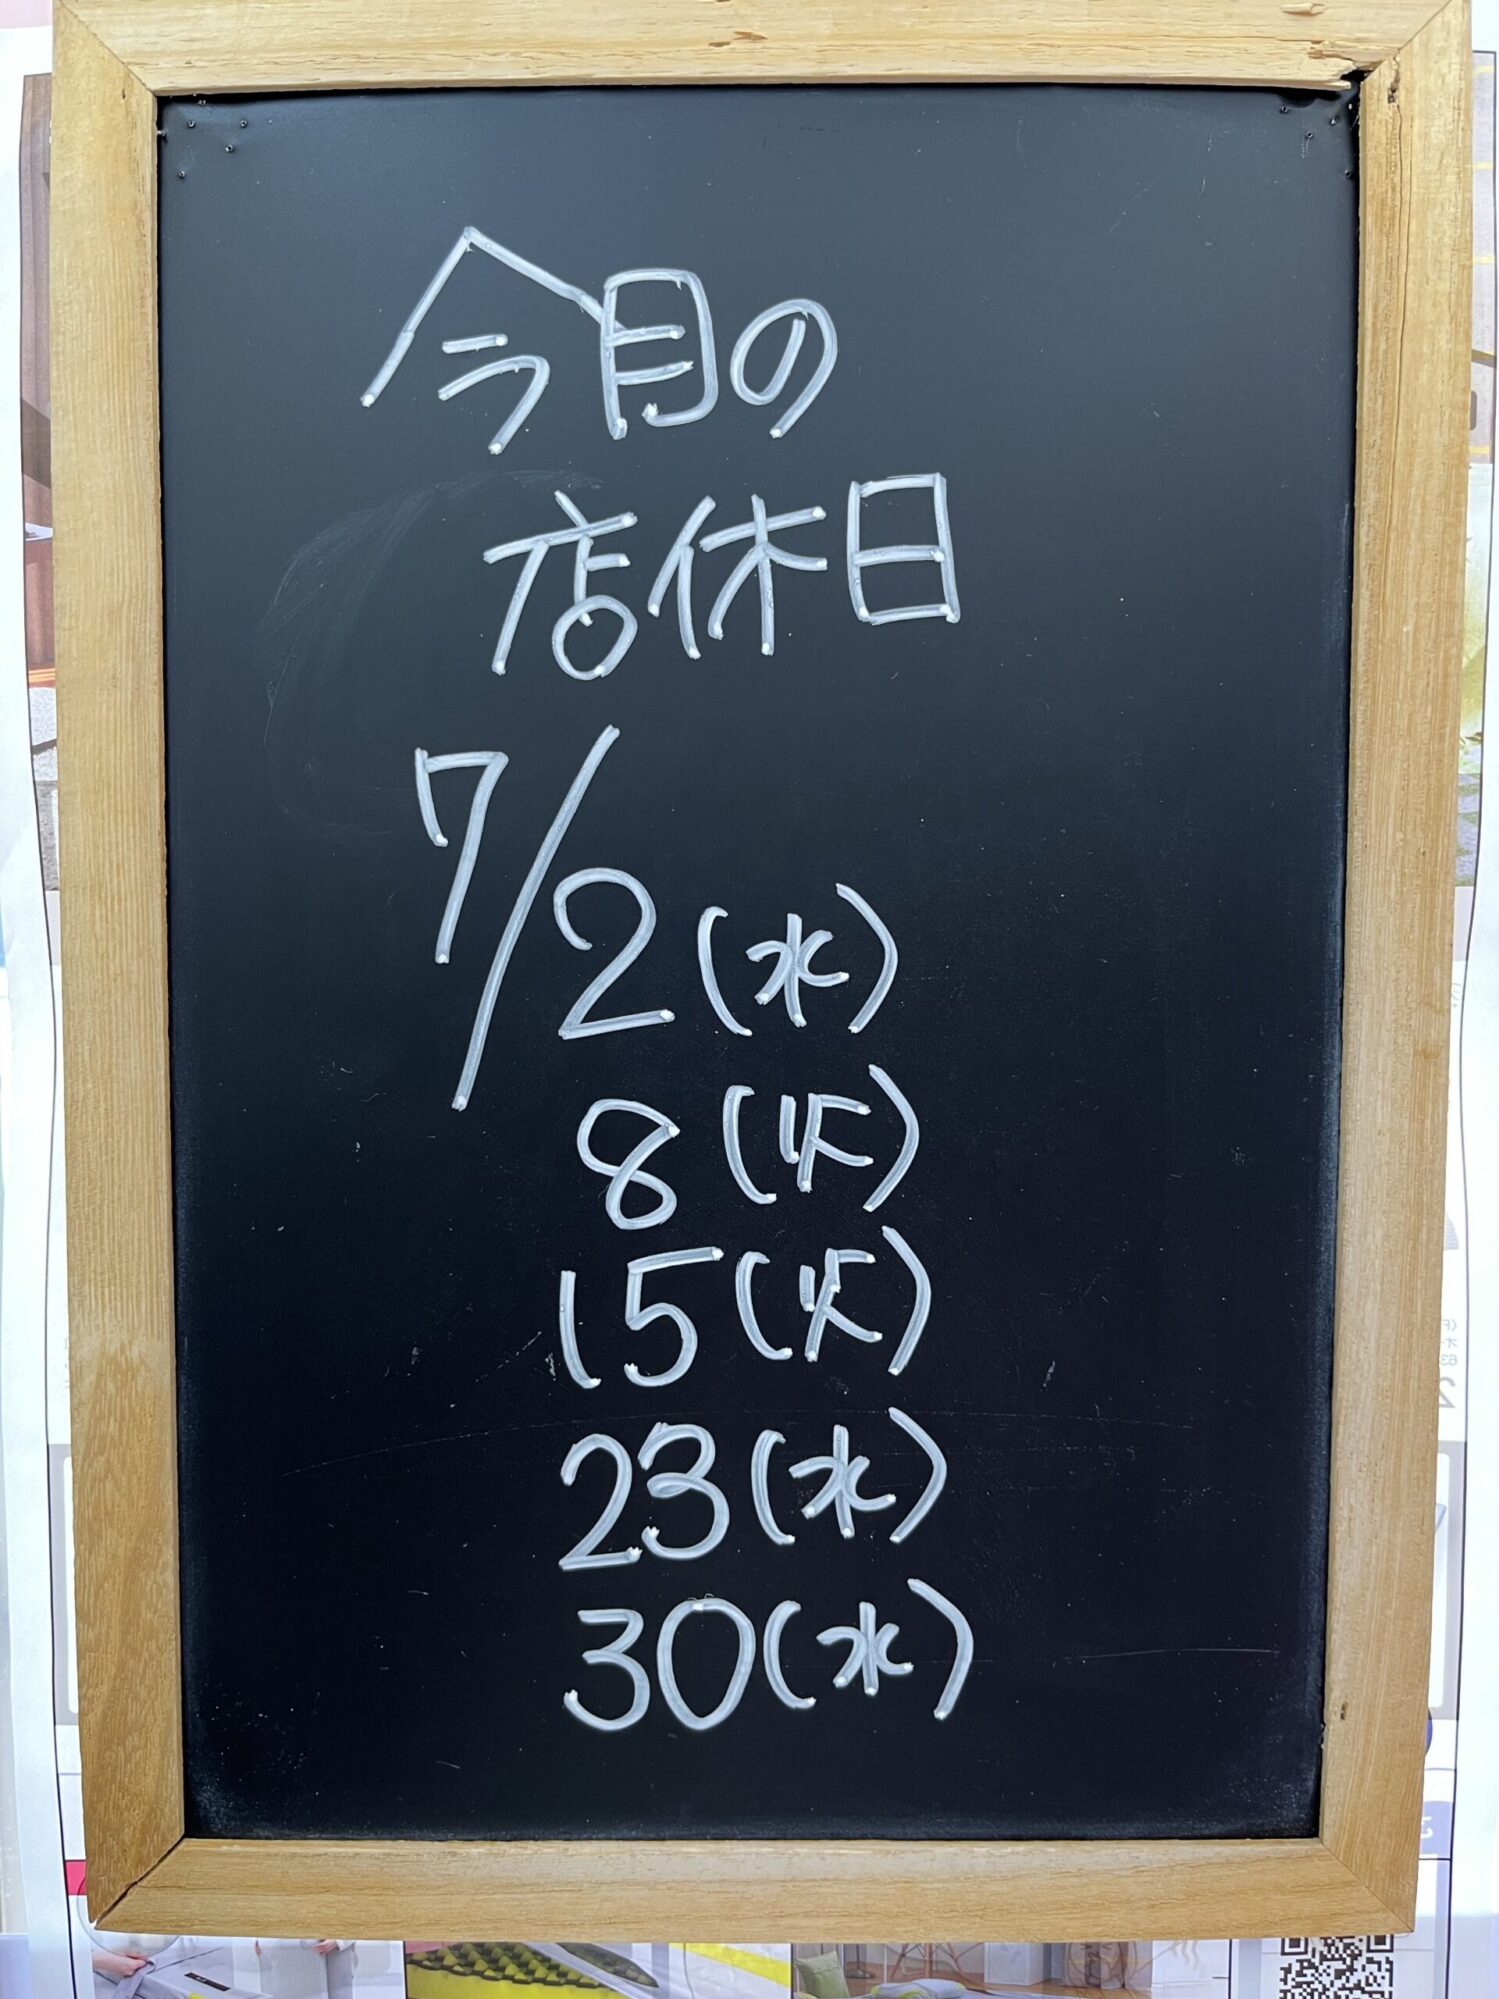 今月の
店休日
7/2(水)
8(火)
15(火)
23(水)
30(水)